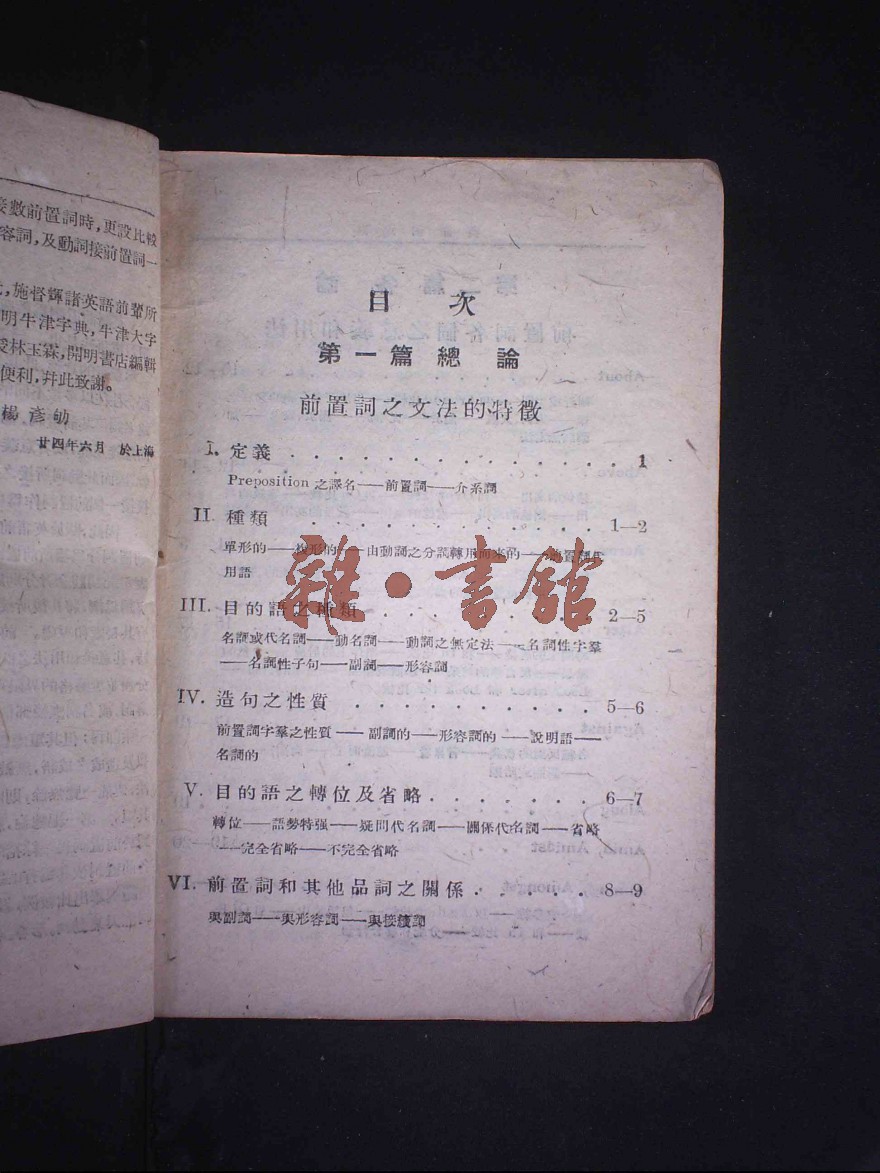 接數前置詞時，更設比較
容詞，及動詞接前置詞一
，施督輝諸英語前輩所
明牛津字典，牛津大字
林玉霖，開明書店編輯
便利，幷此致謝。
楊彥劬
廿四年六月 於上海
目 次
第一篇 總論
前置詞之文法的特徵
I. 定義 . . . . . . . . . . . . . . . . 1
Preposition 之譯名——前置詞——介系詞
II. 種類 . . . . . . . . . . . . . . 1—2
單形的——複形的——由動詞之分詞轉用而來的——
用語
III. 目的語之種類 . . . . . . . . . . . 2—5
名詞或代名詞——動名詞——動詞之無定法——名詞性字羣
——名詞性子句——副詞——形容詞
IV. 造句之性質 . . . . . . . . . . . . 5—6
前置詞字羣之性質——副詞的——形容詞的——說明語——
名詞的
V. 目的語之轉位及省略 . . . . . . . . 6—7
轉位——語勢特强——疑問代名詞——關係代名詞——省略
——完全省略——不完全省略
VI. 前置詞和其他品詞之關係 . . . . . . 8—9
與副詞——與形容詞——與接續詞
雜·書館